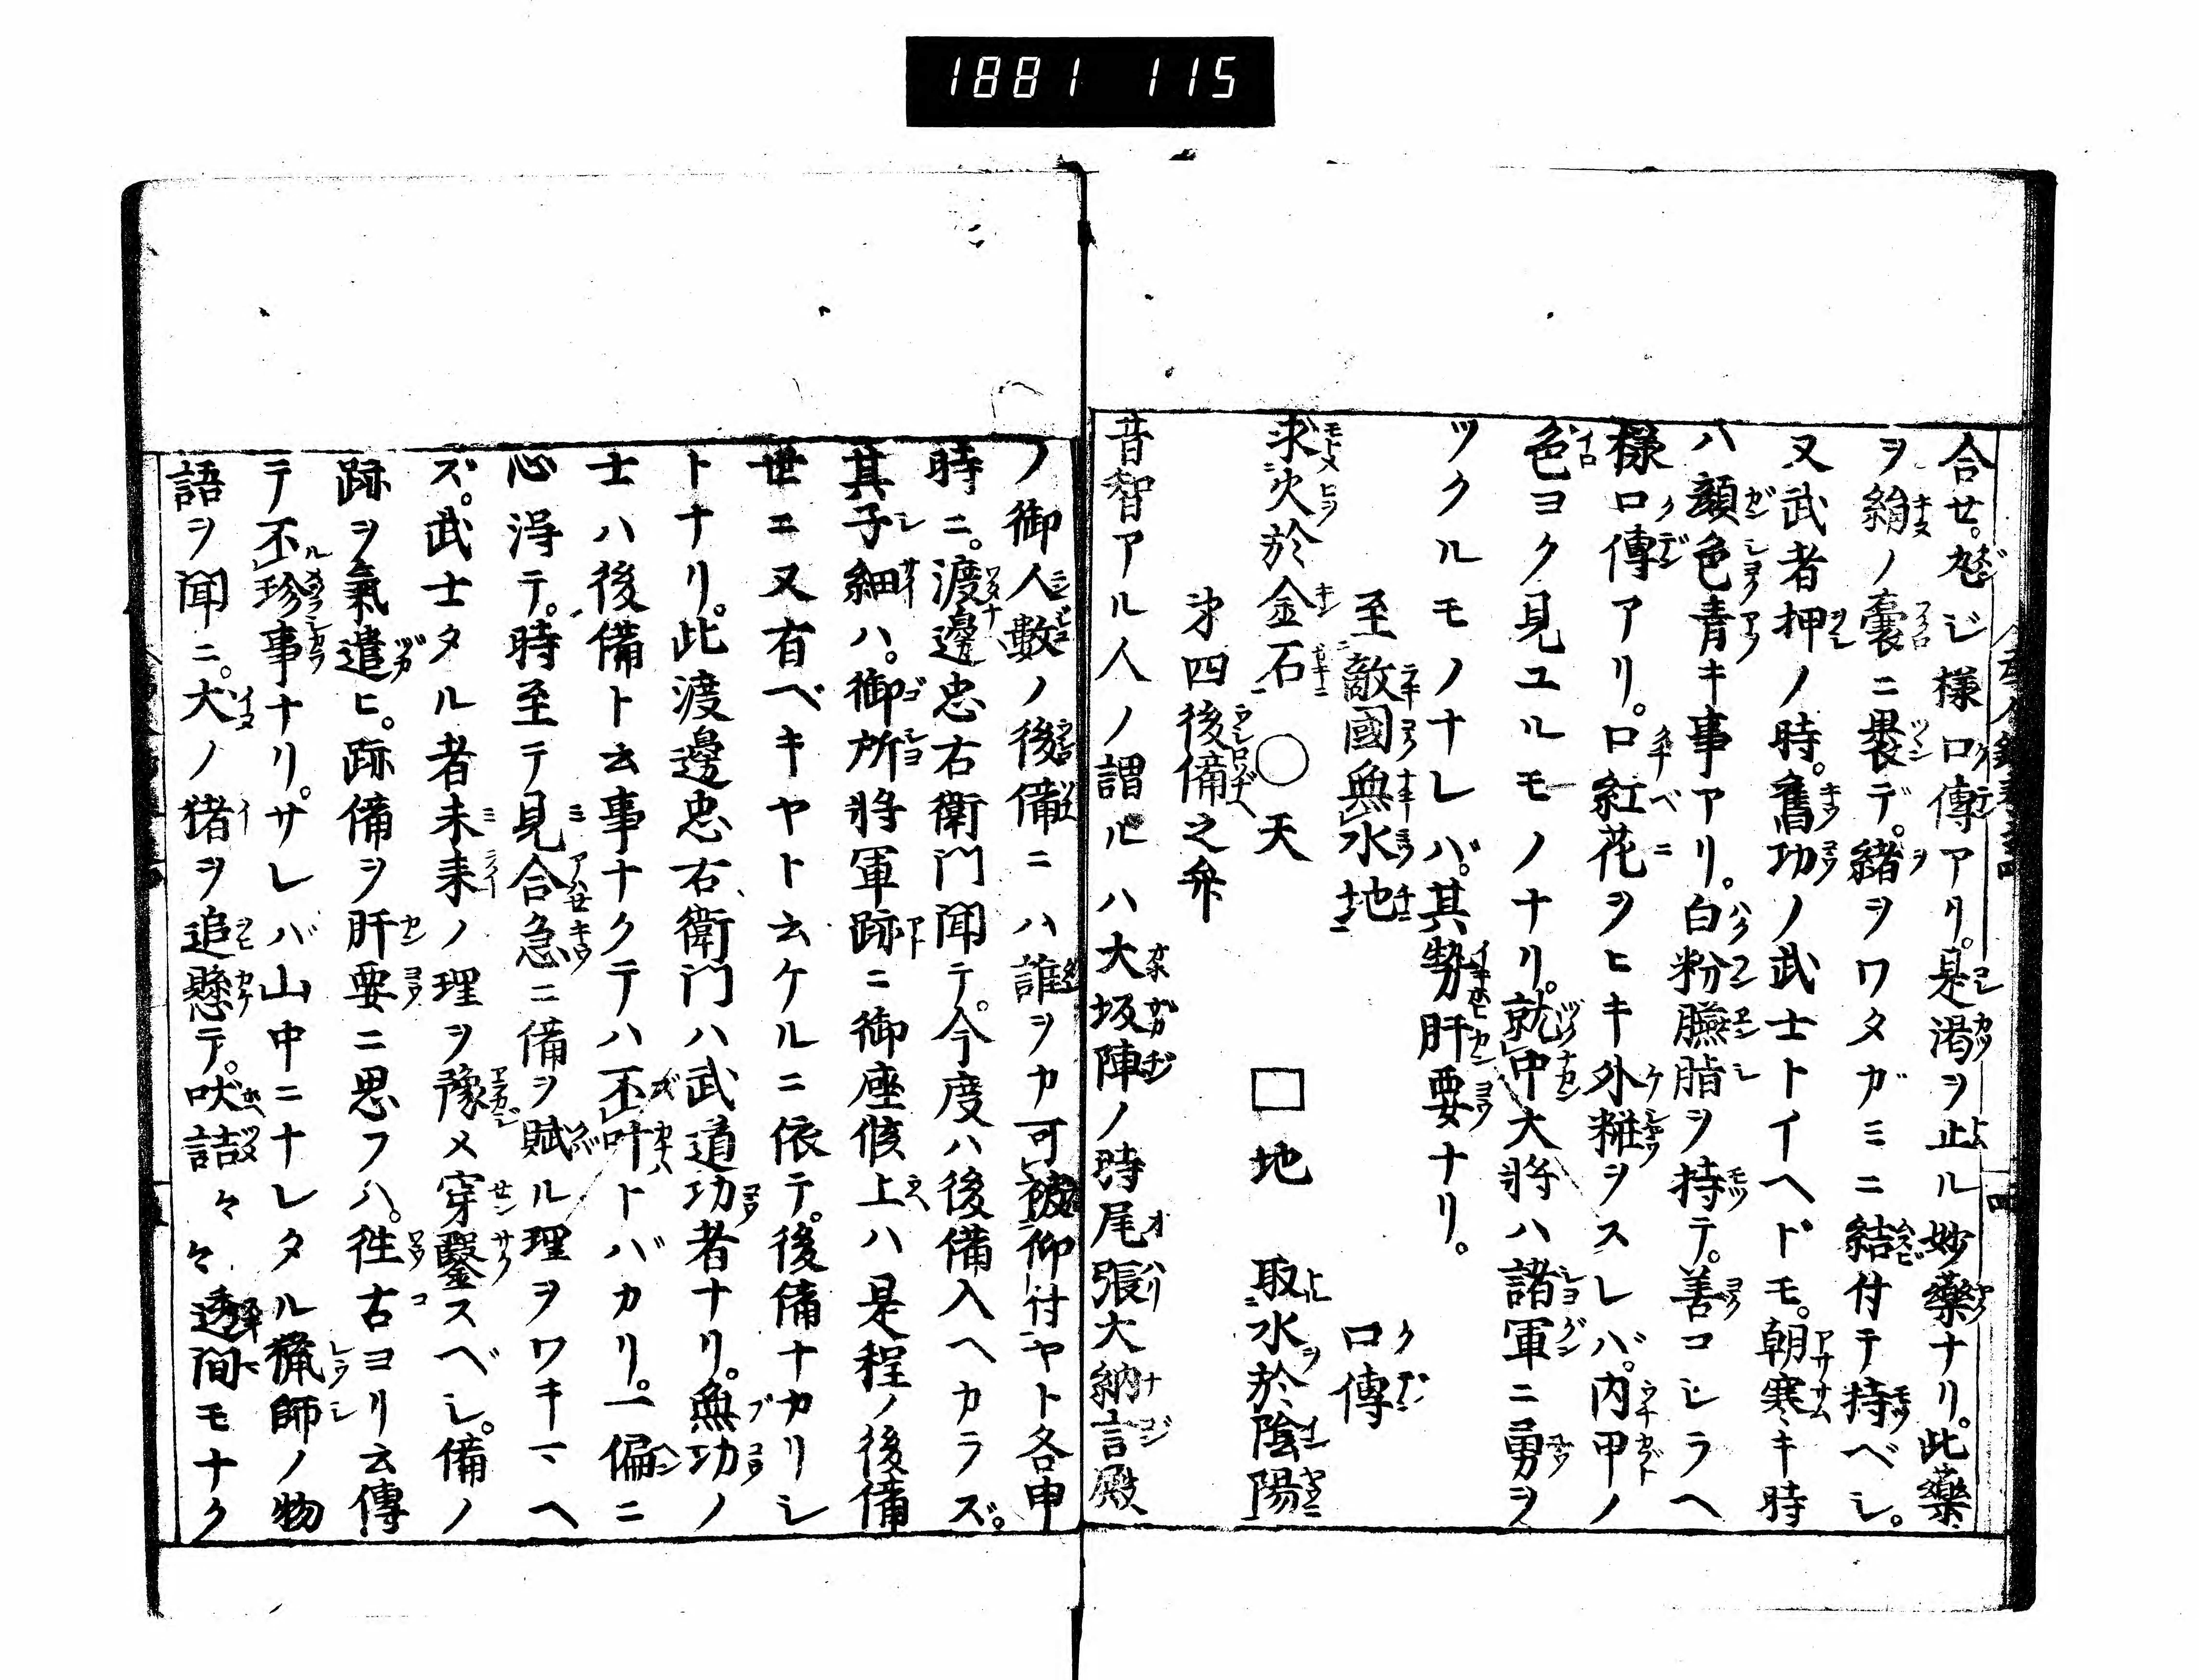 1881 115
合セ。忽ジ様口傳アリ。是渇ヲ止ル妙藥ナリ。此藥
ヲ絹ノ囊ニ裹デ。緒ヲワタガミニ結付テ持ベシ。
又武者押ノ時。舊功ノ武士トイヘドモ。朝寒キ時
ハ顔色青キ事アリ。白粉臙脂ヲ持テ。善コシラヘ
様口傳アリ。口紅花ヲヒキ外粧ヲスレバ。内甲ノ
色ヨク見ユルモノナリ。就中大将ハ諸軍ニ勇ヲ
ツクルモノナレバ。其勢肝要ナリ。
至敵國無水地 口傳
求火於金石 〇天 □地 取水於陰陽
㐧四後備之弁
昔智アル人ノ謂ルハ大坂陣ノ時尾張大納言殿
ノ御人數ノ後備ニハ誰ヲカ可被仰付ヤト各申
時ニ。渡邊忠右衛門聞テ。今度ハ後備入ヘカラズ。
其子細ハ。御所将軍跡ニ御座候上ハ是程ノ後備
世ニ又有ベキヤト云ケルニ依テ。後備ナカリシ
トナリ。此渡邊忠右衛門ハ武道功者ナリ。無功ノ
士ハ後備ト云事ナクテハ不叶トバカリ。一偏ニ
心得テ。時至テ見合急ニ備ヲ賦ル理ヲワキマヘ
ズ。武士タル者未来ノ理ヲ豫メ穿鑿スベシ。備ノ
跡ヲ氣遣ヒ。跡備ヲ肝要ニ思フハ。徃古ヨリ云傳
テ不珍事ナリ。サレバ山中ニナレタル猟師ノ物
語ヲ聞ニ。犬ノ猪ヲ追懸テ。吠詰々々透間モナク